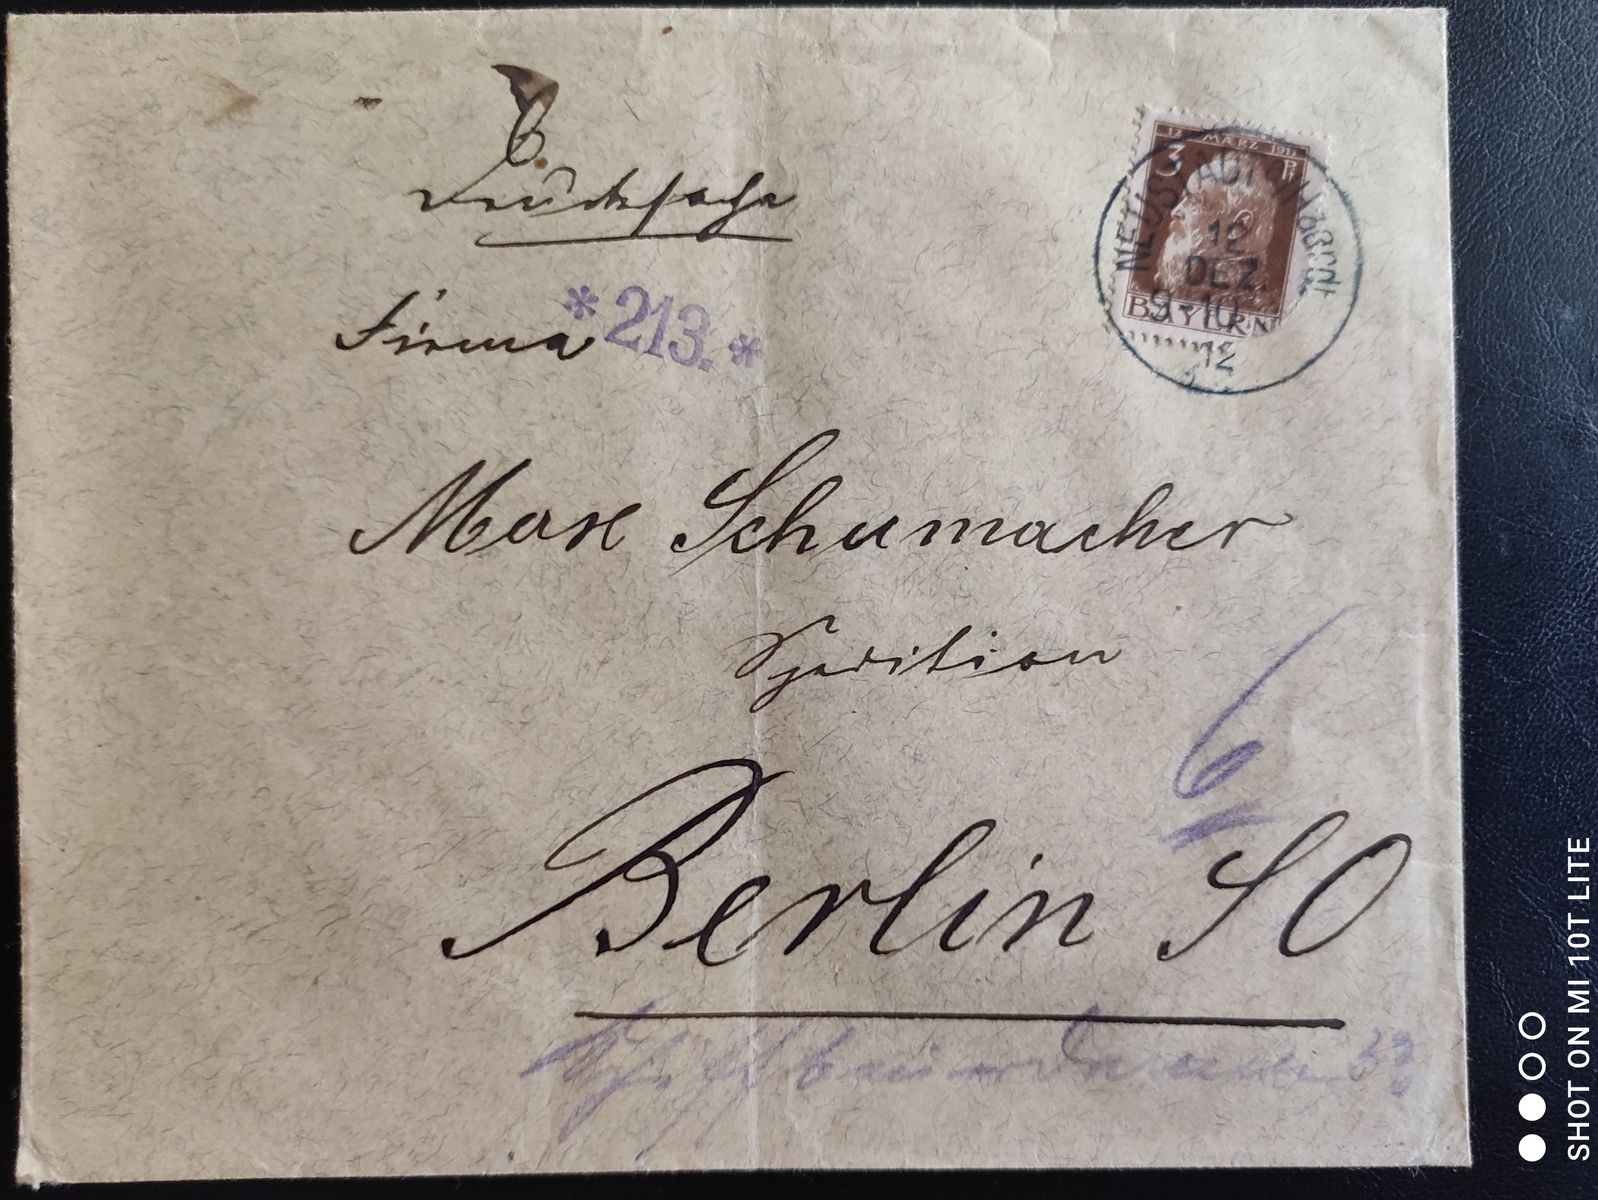 6
Drucksache
Firma
*213.*
12 MÄRZ 1911
3 P
BAYERN
NEUSTADT a/Haardt
12
DEZ.
9-10
12
Max Schumacher
Spedition
6
Berlin SO
Schiffbauerdamm 33
SHOT ON MI 10T LITE